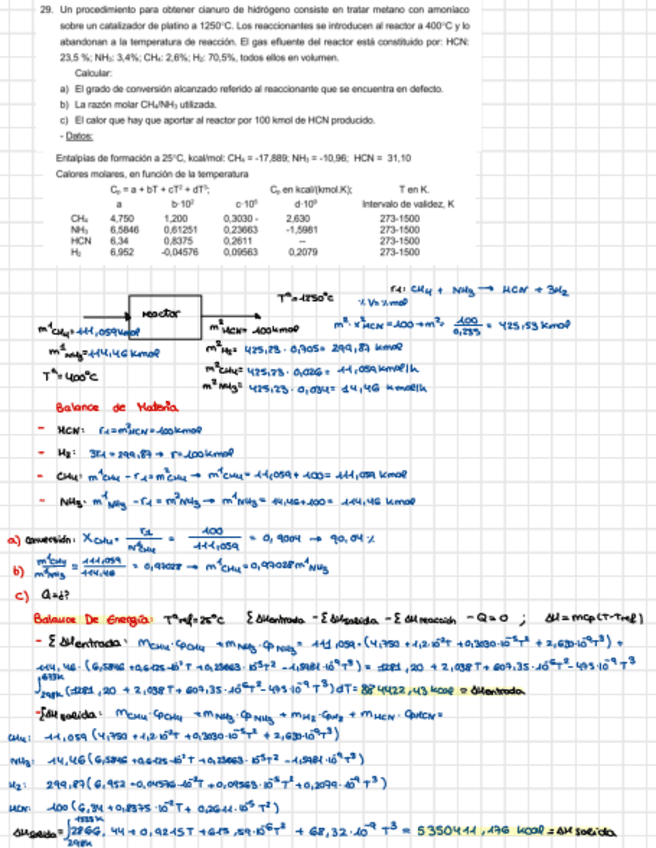 29. Un procedimiento para obtener cianuro de hidrógeno consiste en tratar metano con amoníaco
sobre un catalizador de platino a 1250°C. Los reaccionantes se introducen al reactor a 400°C y lo
abandonan a la temperatura de reacción. El gas efluente del reactor está constituido por: HCN:
23,5 %; NH₃: 3,4%; CH₄: 2,6%; H₂: 70,5%, todos ellos en volumen.
Calcular:
a) El grado de conversión alcanzado referido al reaccionante que se encuentra en defecto.
b) La razón molar CH₄/NH₃ utilizada.
c) El calor que hay que aportar al reactor por 100 kmol de HCN producido.
- Datos:
Entalpías de formación a 25°C, kcal/mol: CH₄ = -17,889; NH₃ = -10,96; HCN = 31,10
Calores molares, en función de la temperatura
Cₚ = a + bT + cT² + dT³; Cₚ en kcal/(kmol.K); T en K.
a b·10² c·10⁵ d·10⁹ Intervalo de validez, K
CH₄ 4,750 1,200 0,3030 - 2,630 273-1500
NH₃ 6,5846 0,61251 0,23663 -1,5981 273-1500
HCN 6,34 0,8375 0,2611 -- 273-1500
H₂ 6,952 -0,04576 0,09563 0,2079 273-1500
reactor
Tª=1250°C
r₁: CH₄ + NH₃ → HCN + 3H₂
% V= % mol
m¹CH₄=111,059 kmol
m¹NH₃=114,46 kmol
Tª=400°C
m²HCN= 100 kmol
m²·x²HCN=100→m²= 100/0,235 = 425,53 kmol
m²H₂= 425,23 · 0,705= 299,87 kmol
m²CH₄= 425,23 · 0,026= 11,059 kmol/h
m²NH₃= 425,23 · 0,034= 14,46 kmol/h
Balance de Materia
- HCN: r₁=m²HCN=100 kmol
- H₂: 3r₁ = 299,87 → r=100 kmol
- CH₄: m¹CH₄ - r₁=m²CH₄ → m¹CH₄= 11,059 + 100= 111,059 kmol
- NH₃: m¹NH₃ - r₁ = m²NH₃ → m¹NH₃= 14,46+100= 114,46 kmol
a) conversión: XCH₄= r₁/n¹CH₄ = 100/111,059 = 0,9004 → 90,04 %
b) m¹CH₄/m¹NH₃ = 111,059/114,46 = 0,97028 → m¹CH₄=0,97028 m¹NH₃
c) Q=¿?
Balance De Energía: Tªref=25°C Σ ΔHentrada - Σ ΔHsalida - Σ ΔH reacción - Q=0 ; ΔH=mcp(T-Tref)
- Σ ΔHentrada: mCH₄·CpCH₄ + mNH₃·CpNH₃ = 111,059·(4,750 +1,2·10⁻²T +0,3030·10⁻⁵T² + 2,630·10⁻⁹T³) +
114,46·(6,5846 +0,6125·10⁻²T +0,23663·10⁻⁵T² -1,5981·10⁻⁹T³) = 1281,20 + 2,038T + 607,35·10⁻⁶T² -495·10⁻⁹T³
∫298k 673k (1281,20 + 2,038T + 607,35·10⁻⁶T² -495·10⁻⁹T³)dT= 884422,43 kcal = ΔHentrada
- ΣΔH salida: mCH₄·CpCH₄ + mNH₃·CpNH₃ + mH₂·CpH₂ + mHCN·CpHCN=
CH₄: 11,059 (4,750 +1,2·10⁻²T +0,3030·10⁻⁵T² + 2,630·10⁻⁹T³)
NH₃: 14,46(6,5846 +0,6125·10⁻²T +0,23663·10⁻⁵T² -1,5981·10⁻⁹T³)
H₂: 299,87(6,952 -0,04576·10⁻²T +0,09563·10⁻⁵T² +0,2079·10⁻⁹T³)
HCN: 100(6,34 +0,8375·10⁻²T + 0,2611·10⁻⁵T²)
ΔHsalida=∫298k 1523k 2866,44 + 0,9245T + 613,59·10⁻⁶T² + 68,32·10⁻⁹T³ = 5350411,176 kcal = ΔH salida